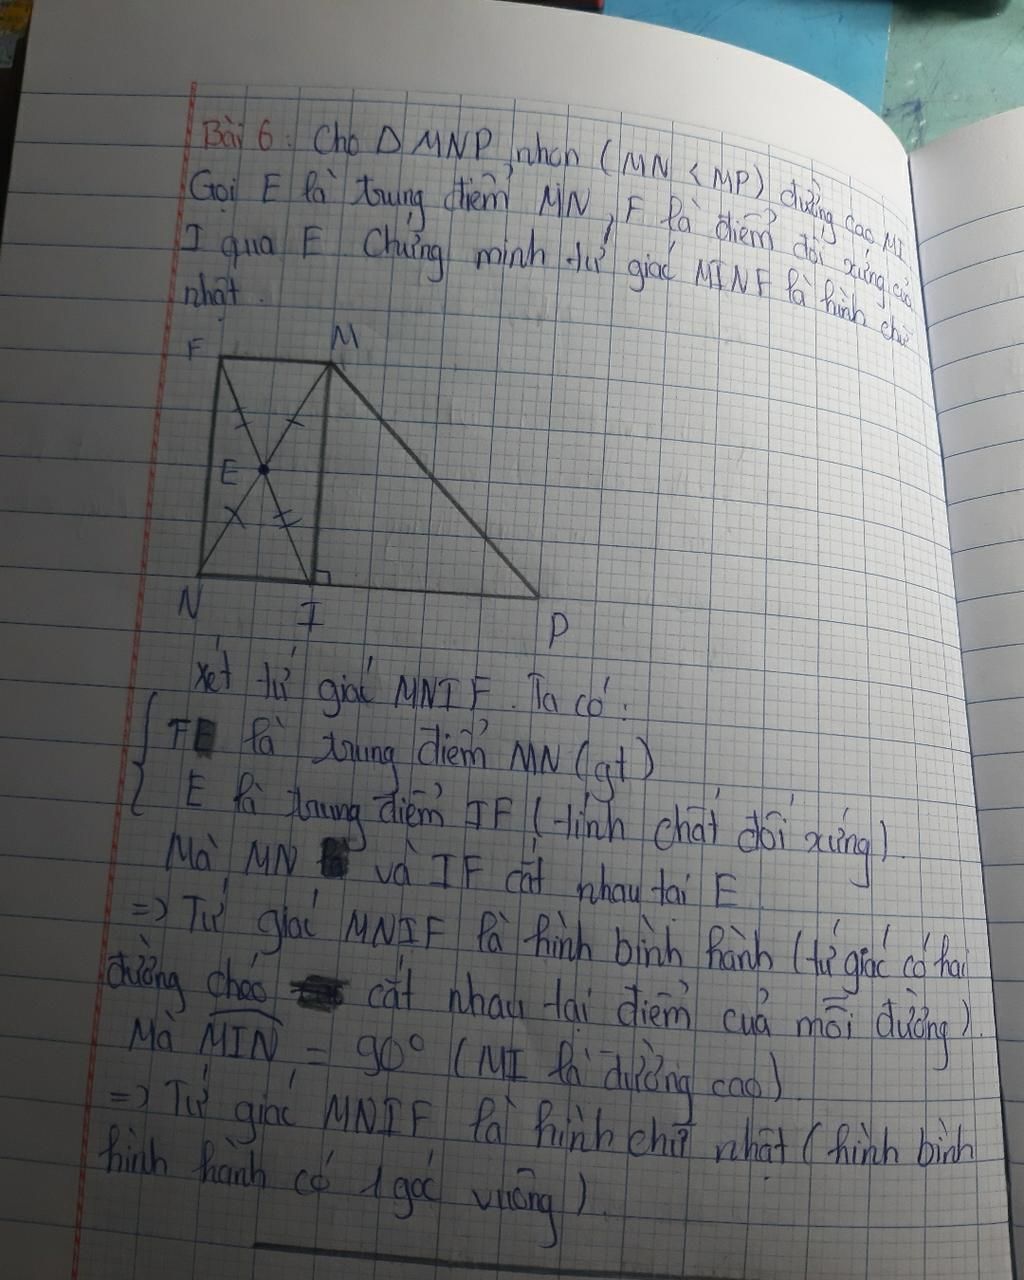 Bài 6: Cho Δ MNP nhọn (MN < MP) đường cao MI.
Gọi E là trung điểm MN, F là điểm đối xứng của
I qua E Chứng minh tứ giác MINF là hình chữ
nhật.
F M
E
N I P
Xét tứ giác MNIF. Ta có:
E là trung điểm MN (gt)
E là trung điểm IF (tính chất đối xứng).
Mà MN và IF cắt nhau tại E
=> Tứ giác MNIF là hình bình hành (tứ giác có hai
đường chéo cắt nhau tại điểm của mỗi đường).
Mà MIN = 90° (MI là đường cao)
=> Tứ giác MNIF là hình chữ nhật (hình bình
hình hành có 1 góc vuông).